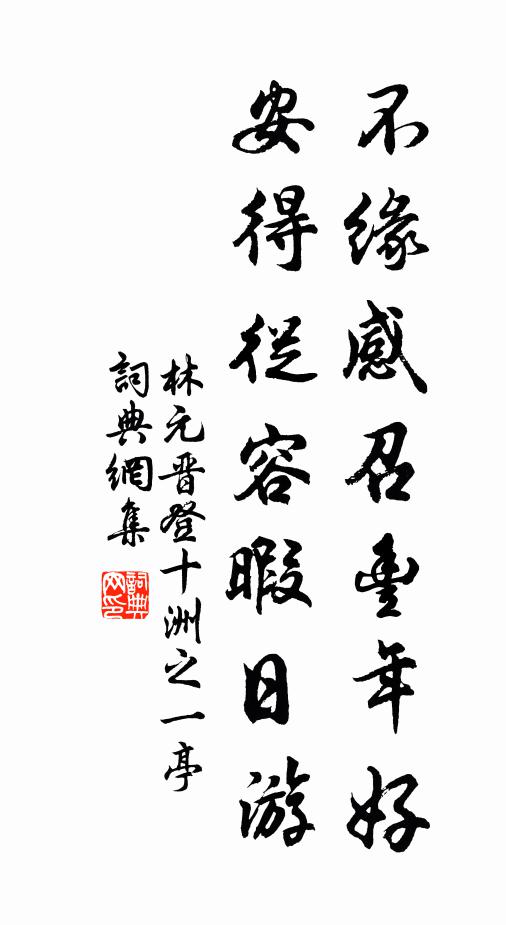 不緣感召豊年好
安得從容暇日游
林元晋登十洲之一亭
詞典網集
詞典网印